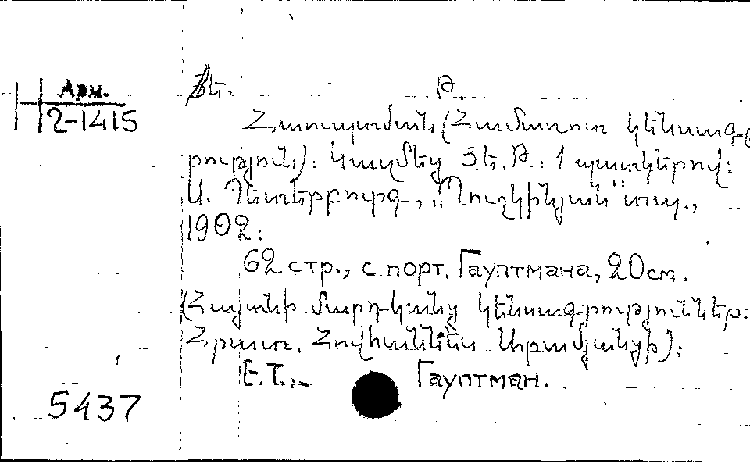 Арм.
2-1415
Տե. Թ.
Հաուպտման (Համառօտ կենսագ-
րութիւն): Կազմեց Տե. Թ.: 1 պատկերով:
Ս. Պետերբուրգ, „Պուշկինյան" տպ.,
1902:
62 стр., с порт. Гауптмана, 20см.
(Հայանի մարդկանց կենսագրութիւններ:
Հրատ. Հովհաննես Աբամյանցի):
Е.Т.
Гауптман.
5437